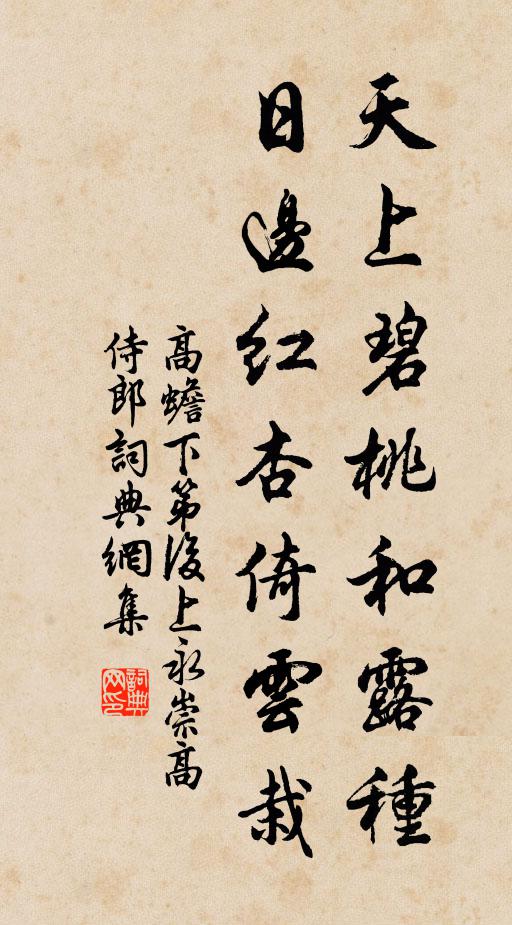 天上碧桃和露種
日邊紅杏倚雲栽
高蟾下第後上永崇高
侍郎詞典網集
詞典网印